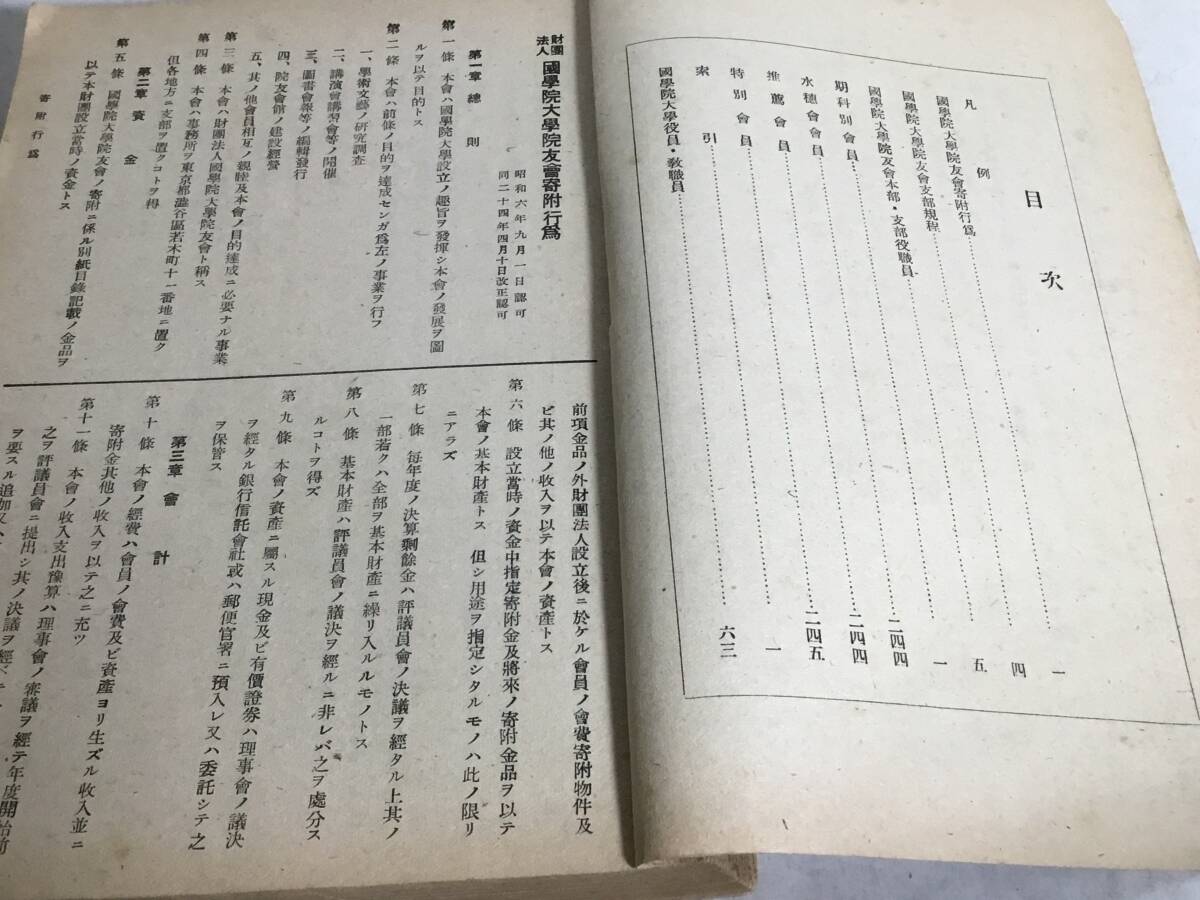 目次
凡例……一
國學院大學院友會寄附行爲……四
國學院大學院友會支部規程……五
國學院大學院友會本部・支部役職員……一
期科別會員……二四四
水穗會會員……二四四
推薦會員……二四五
特別會員……一
索引……六三
國學院大學役員・敎職員……
財團法人 國學院大學院友會寄附行爲
昭和六年九月一日認可
同二十四年四月十日改正認可
第一章 總則
第一條 本會ハ國學院大學設立ノ趣旨ヲ發揮シ本會ノ發展ヲ圖
ルヲ以テ目的トス
第二條 本會ハ前條ノ目的ヲ達成センガ爲左ノ事業ヲ行フ
一、學術文藝ノ硏究調査
二、講演會講習會等ノ開催
三、圖書會報等ノ編輯發行
四、院友會館ノ建設經營
五、其ノ他會員相互ノ親睦及本會ノ目的達成ニ必要ナル事業
第三條 本會ハ財團法人國學院大學院友會ト稱ス
第四條 本會ハ事務所ヲ東京都澁谷區若木町十一番地ニ置ク
但各地方ニ支部ヲ置クコトヲ得
第二章 資金
第五條 國學院大學院友會ノ寄附ニ係ル別紙目錄記載ノ金品ヲ
以テ本財團設立當時ノ資金トス
寄附行爲
前項金品ノ外財團法人設立後ニ於ケル會員ノ會費寄附物件及
ビ其ノ他ノ收入ヲ以テ本會ノ資產トス
第六條 設立當時ノ資金中指定寄附金及將來ノ寄附金品ヲ以テ
本會ノ基本財產トス 但シ用途ヲ指定シタルモノハ此ノ限リ
ニアラズ
第七條 每年度ノ決算剩餘金ハ評議員會ノ決議ヲ經タル上其ノ
一部若クハ全部ヲ基本財產ニ繰リ入ルルモノトス
第八條 基本財產ハ評議員會ノ議決ヲ經ルニ非レバ之ヲ處分ス
ルコトヲ得ズ
第九條 本會ノ資產ニ屬スル現金及ビ有價證券ハ理事會ノ議決
ヲ經タル銀行信託會社或ハ郵便官署ニ預入レ又ハ委託シテ之
ヲ保管ス
第三章 會計
第十條 本會ノ經費ハ會員ノ會費及ビ資產ヨリ生ズル收入並ニ
寄附金其他ノ收入ヲ以テ之ニ充ツ
第十一條 本會ノ收入支出豫算ハ理事會ノ審議ヲ經テ年度開始前
之ヲ評議員會ニ提出シ其ノ決議ヲ經
ヲ要スル追加又ハ